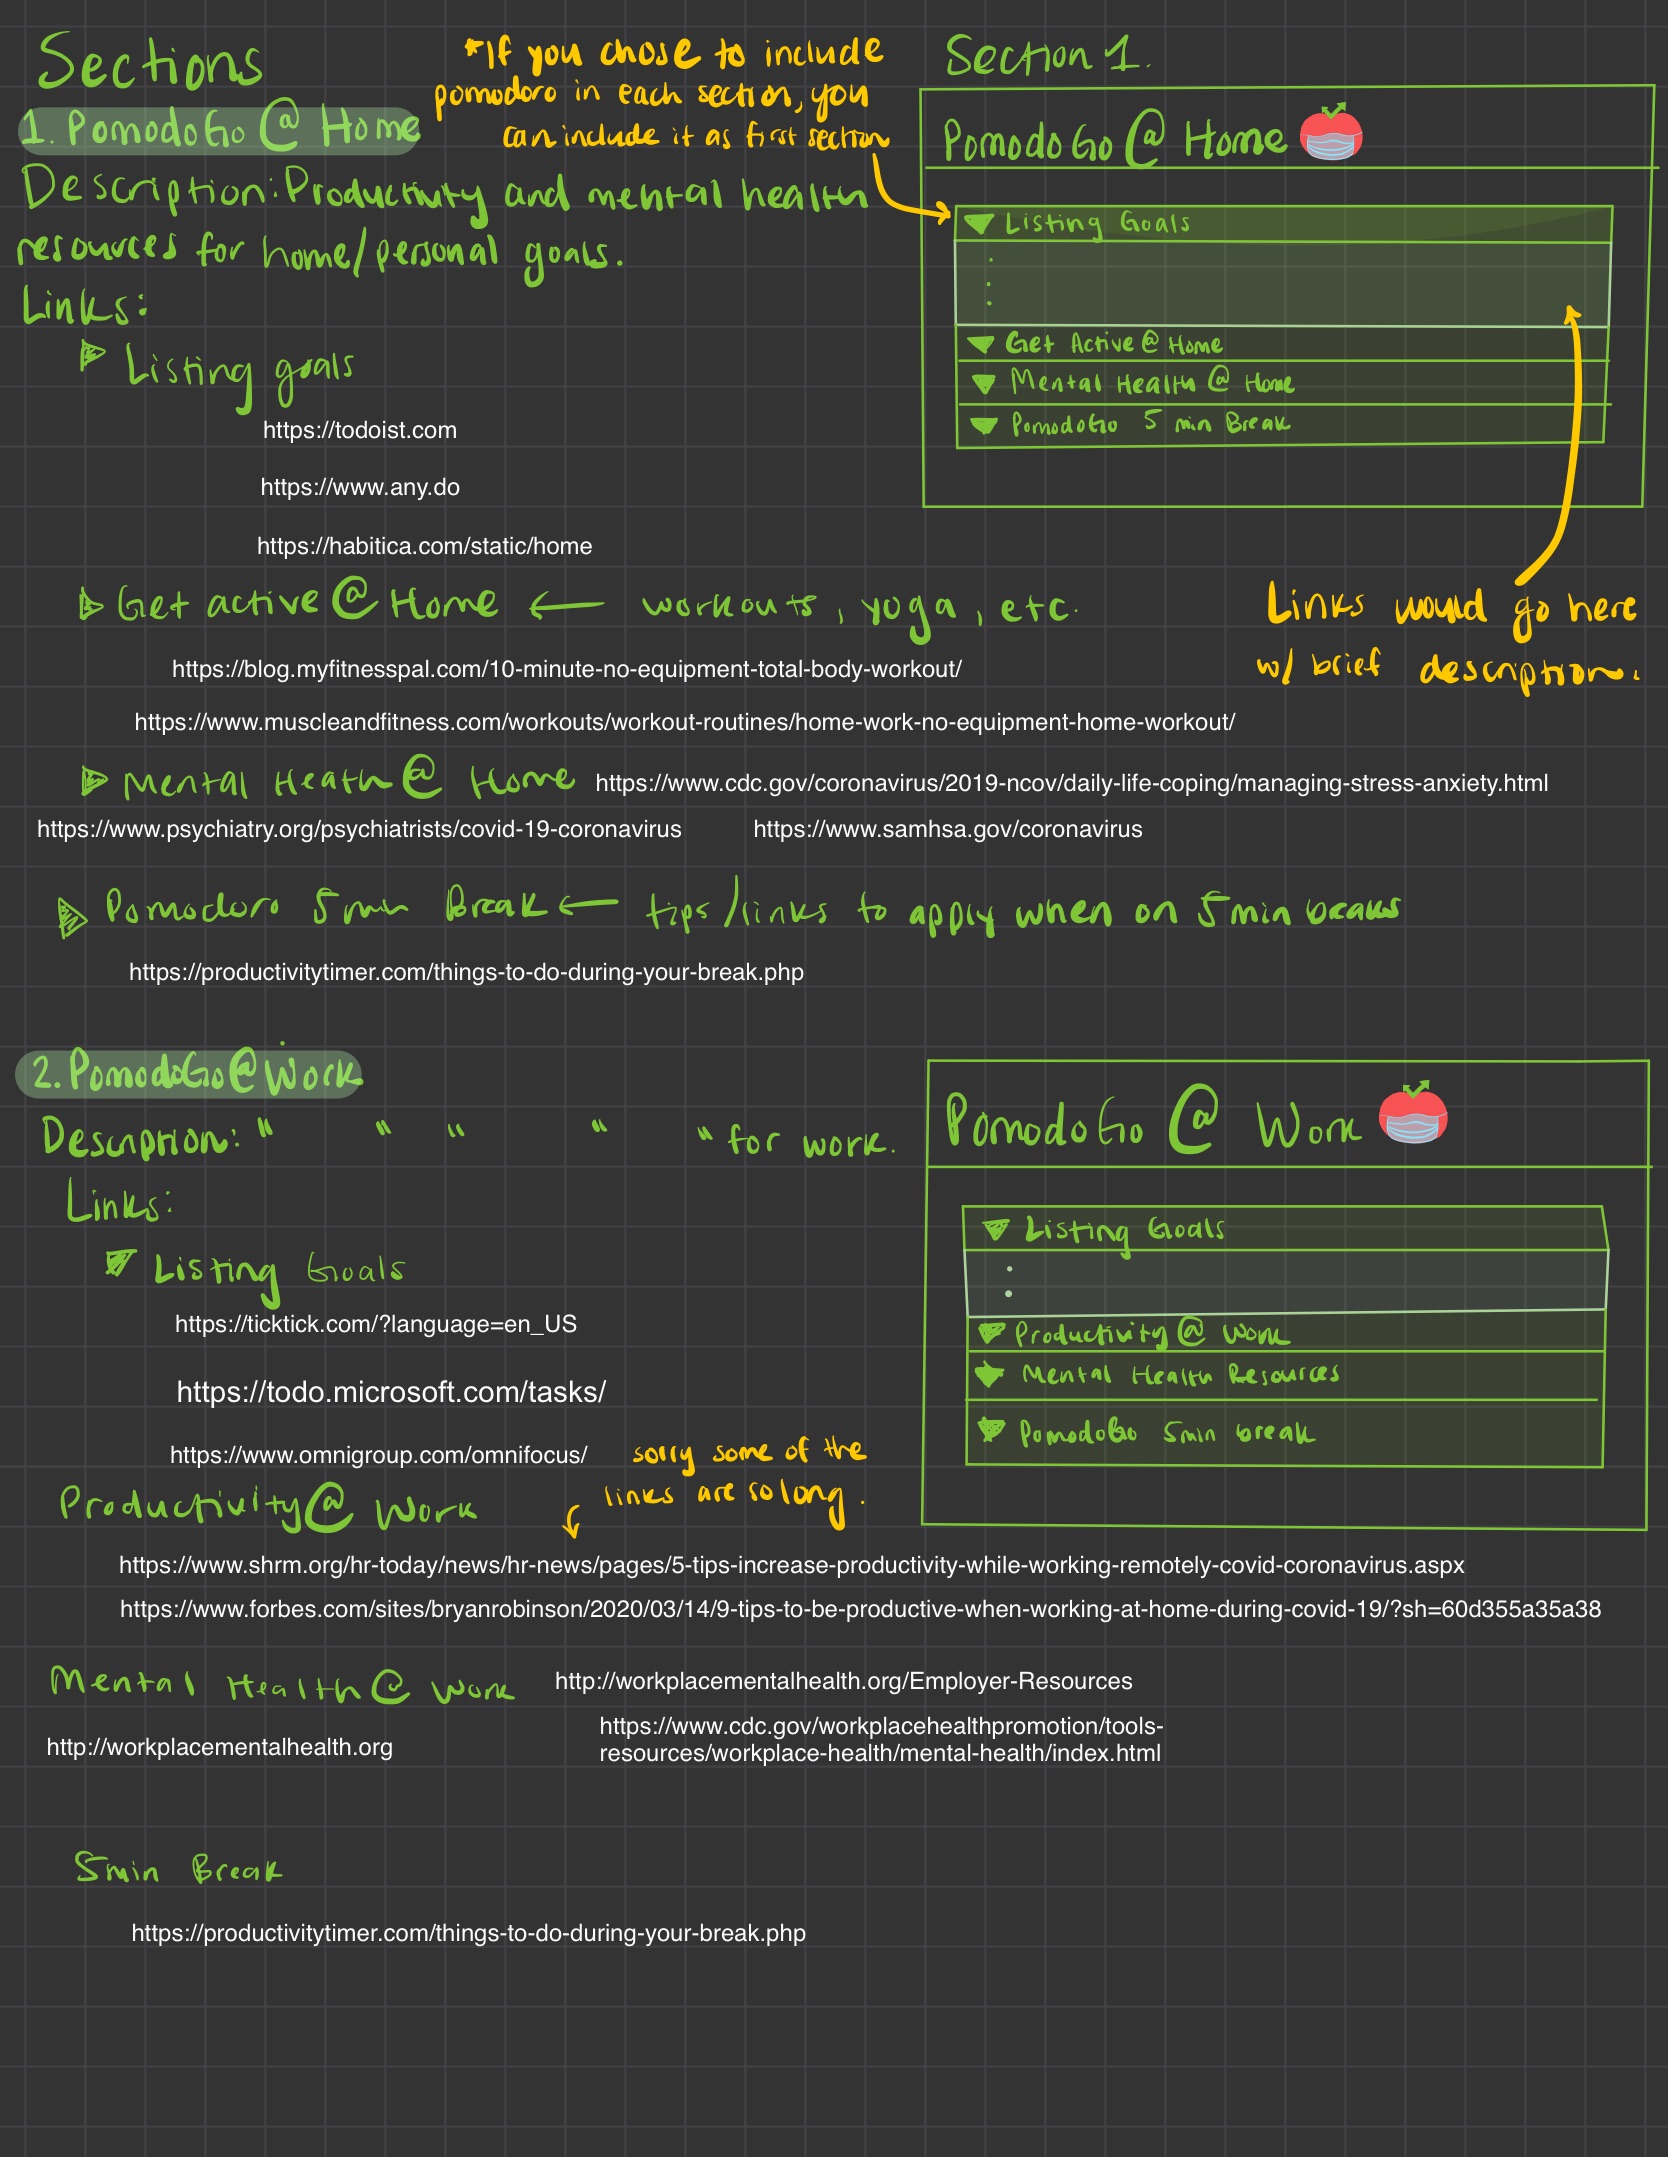 Sections
1. PomodoGo @ Home
Description: Productivity and mental health
resources for home/personal goals.
Links:
Listing goals
https://todoist.com
https://www.any.do
https://habitica.com/static/home
*If you chose to include
pomodoro in each section, you
can include it as first section
Section 1.
PomodoGo @ Home
Listing Goals
Get Active @ Home
Mental Health @ Home
PomodoGo 5 min Break
Links would go here
w/ brief description.
Get active @ Home ← workouts, yoga, etc.
https://blog.myfitnesspal.com/10-minute-no-equipment-total-body-workout/
https://www.muscleandfitness.com/workouts/workout-routines/home-work-no-equipment-home-workout/
Mental Heath @ Home https://www.cdc.gov/coronavirus/2019-ncov/daily-life-coping/managing-stress-anxiety.html
https://www.psychiatry.org/psychiatrists/covid-19-coronavirus https://www.samhsa.gov/coronavirus
Pomodoro 5 min Break ← tips/links to apply when on 5 min breaks
https://productivitytimer.com/things-to-do-during-your-break.php
2. PomodoGo @ Work
Description: " " " " " for work.
Links:
Listing Goals
https://ticktick.com/?language=en_US
https://todo.microsoft.com/tasks/
https://www.omnigroup.com/omnifocus/
PomodoGo @ Work
Listing Goals
Productivity @ Work
Mental Health Resources
PomodoGo 5min break
sorry some of the
links are so long.
Productivity @ Work
https://www.shrm.org/hr-today/news/hr-news/pages/5-tips-increase-productivity-while-working-remotely-covid-coronavirus.aspx
https://www.forbes.com/sites/bryanrobinson/2020/03/14/9-tips-to-be-productive-when-working-at-home-during-covid-19/?sh=60d355a35a38
Mental Health @ Work http://workplacementalhealth.org/Employer-Resources
http://workplacementalhealth.org
https://www.cdc.gov/workplacehealthpromotion/tools-
resources/workplace-health/mental-health/index.html
5min Break
https://productivitytimer.com/things-to-do-during-your-break.php